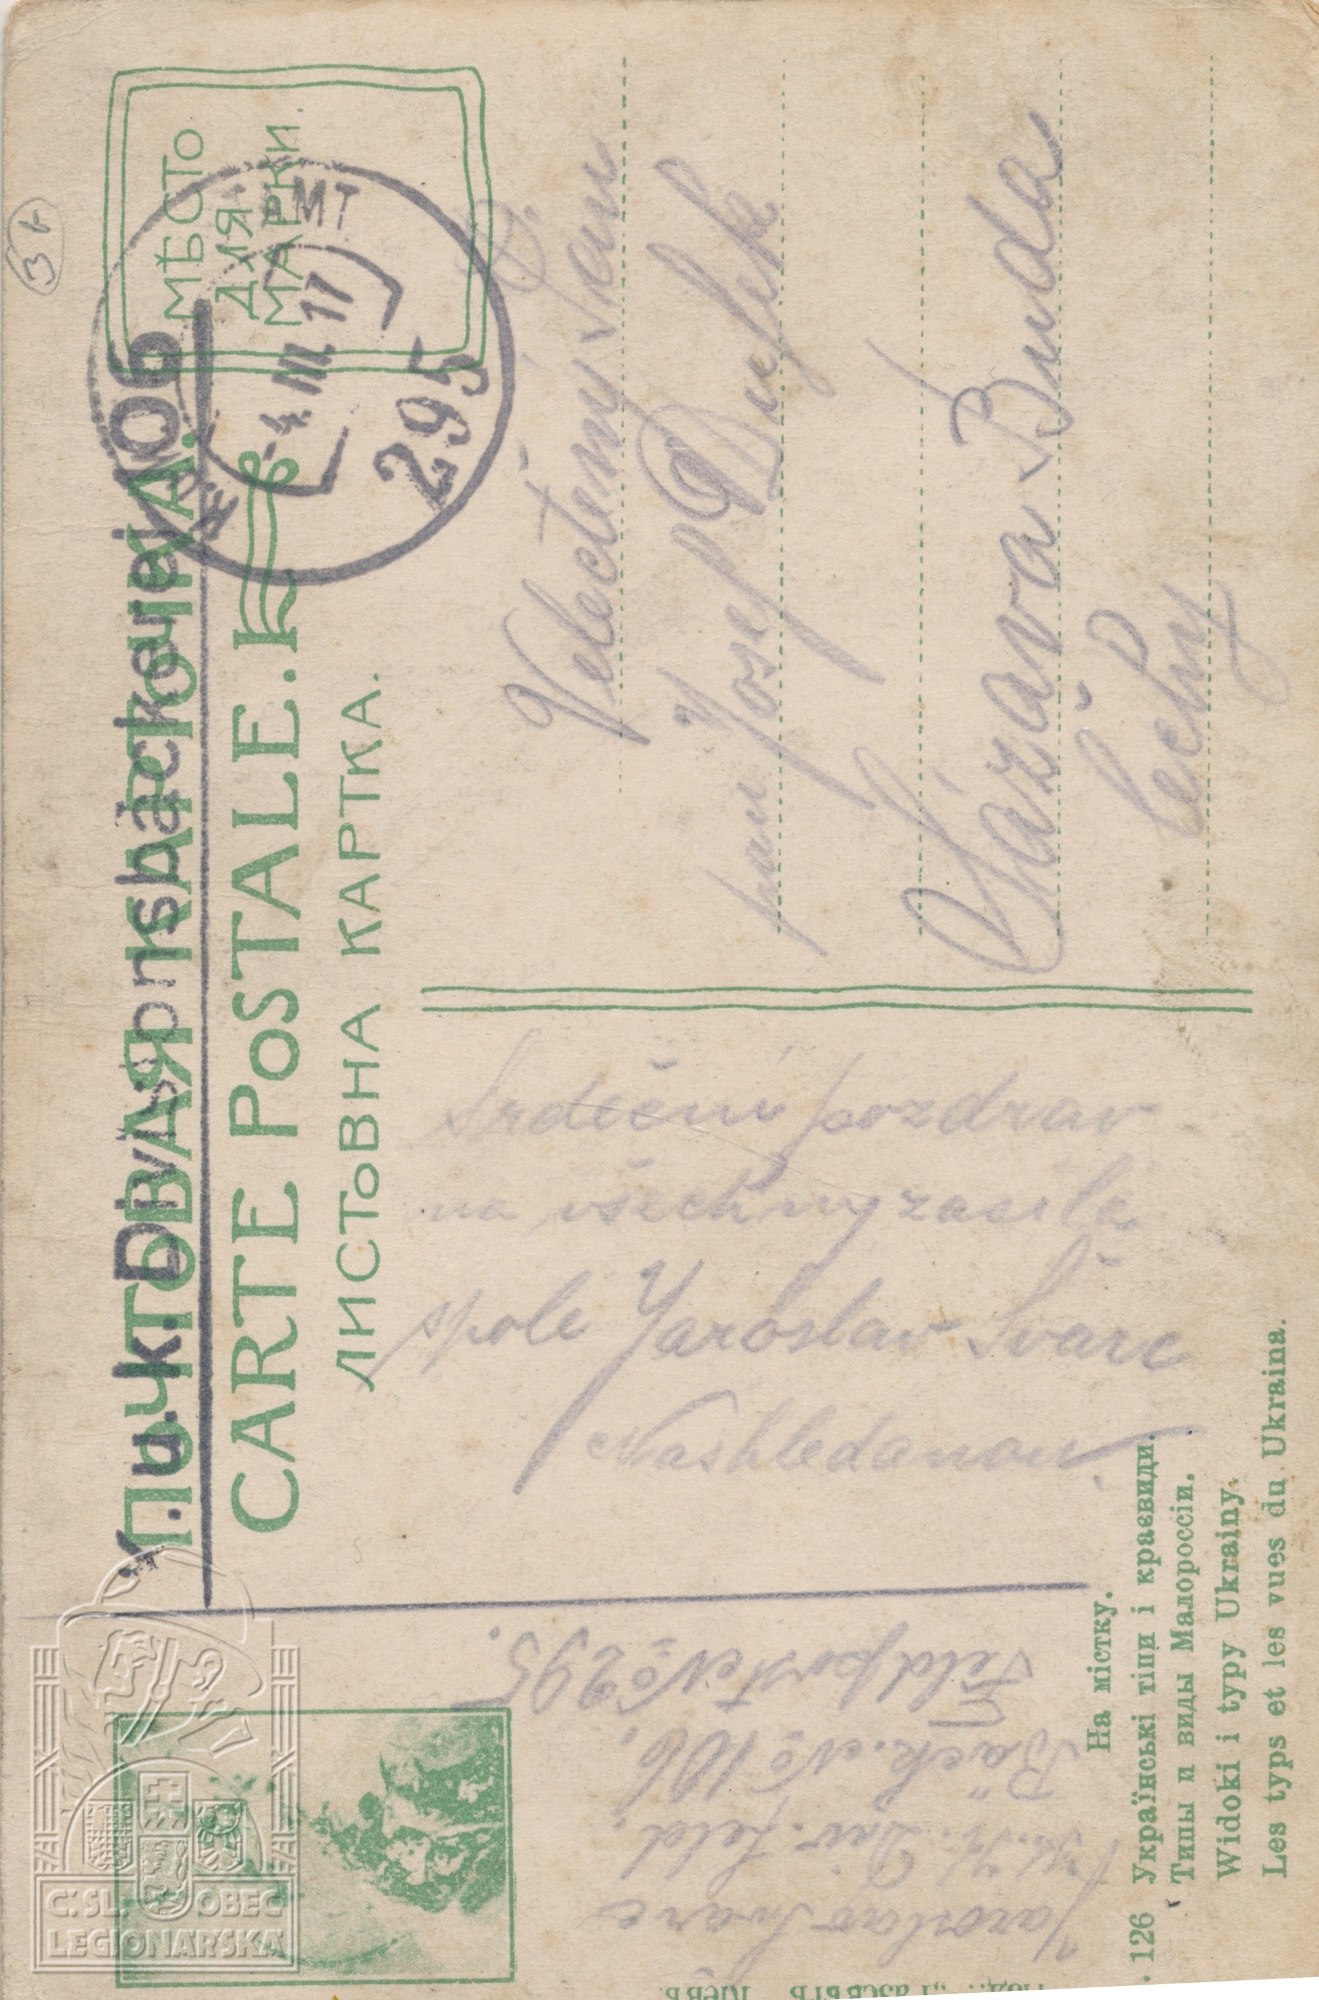 ПОЧТОВАЯ КАРТОЧКА.
CARTE POSTALE.
ЛИСТОВНА КАРТКА.
МѢСТО
ДЛЯ
МАРКИ.
K. u. k. Divisionsbäckerei 106
AMT
-4. III. 17
295
3k
Velectěný Pan
pan Josef Dufek
Sázava Buda
Čechy
Srdečný pozdrav
na všechny zasílá
spole Jaroslav Švarc
Nashledanou.
Jaroslav Švarc
K. K. Div. Feld.
Bäck. No 106,
Feldpost No 295.
На містку.
126 Українські тіпи і краєвиди.
Типы и виды Малороссіи.
Widoki i typy Ukrainy.
Les typs et les vues du Ukraina.
Изд. „Разсвѣтъ Кіевъ.
Č.SL. OBEC
LEGIONÁŘSKÁ